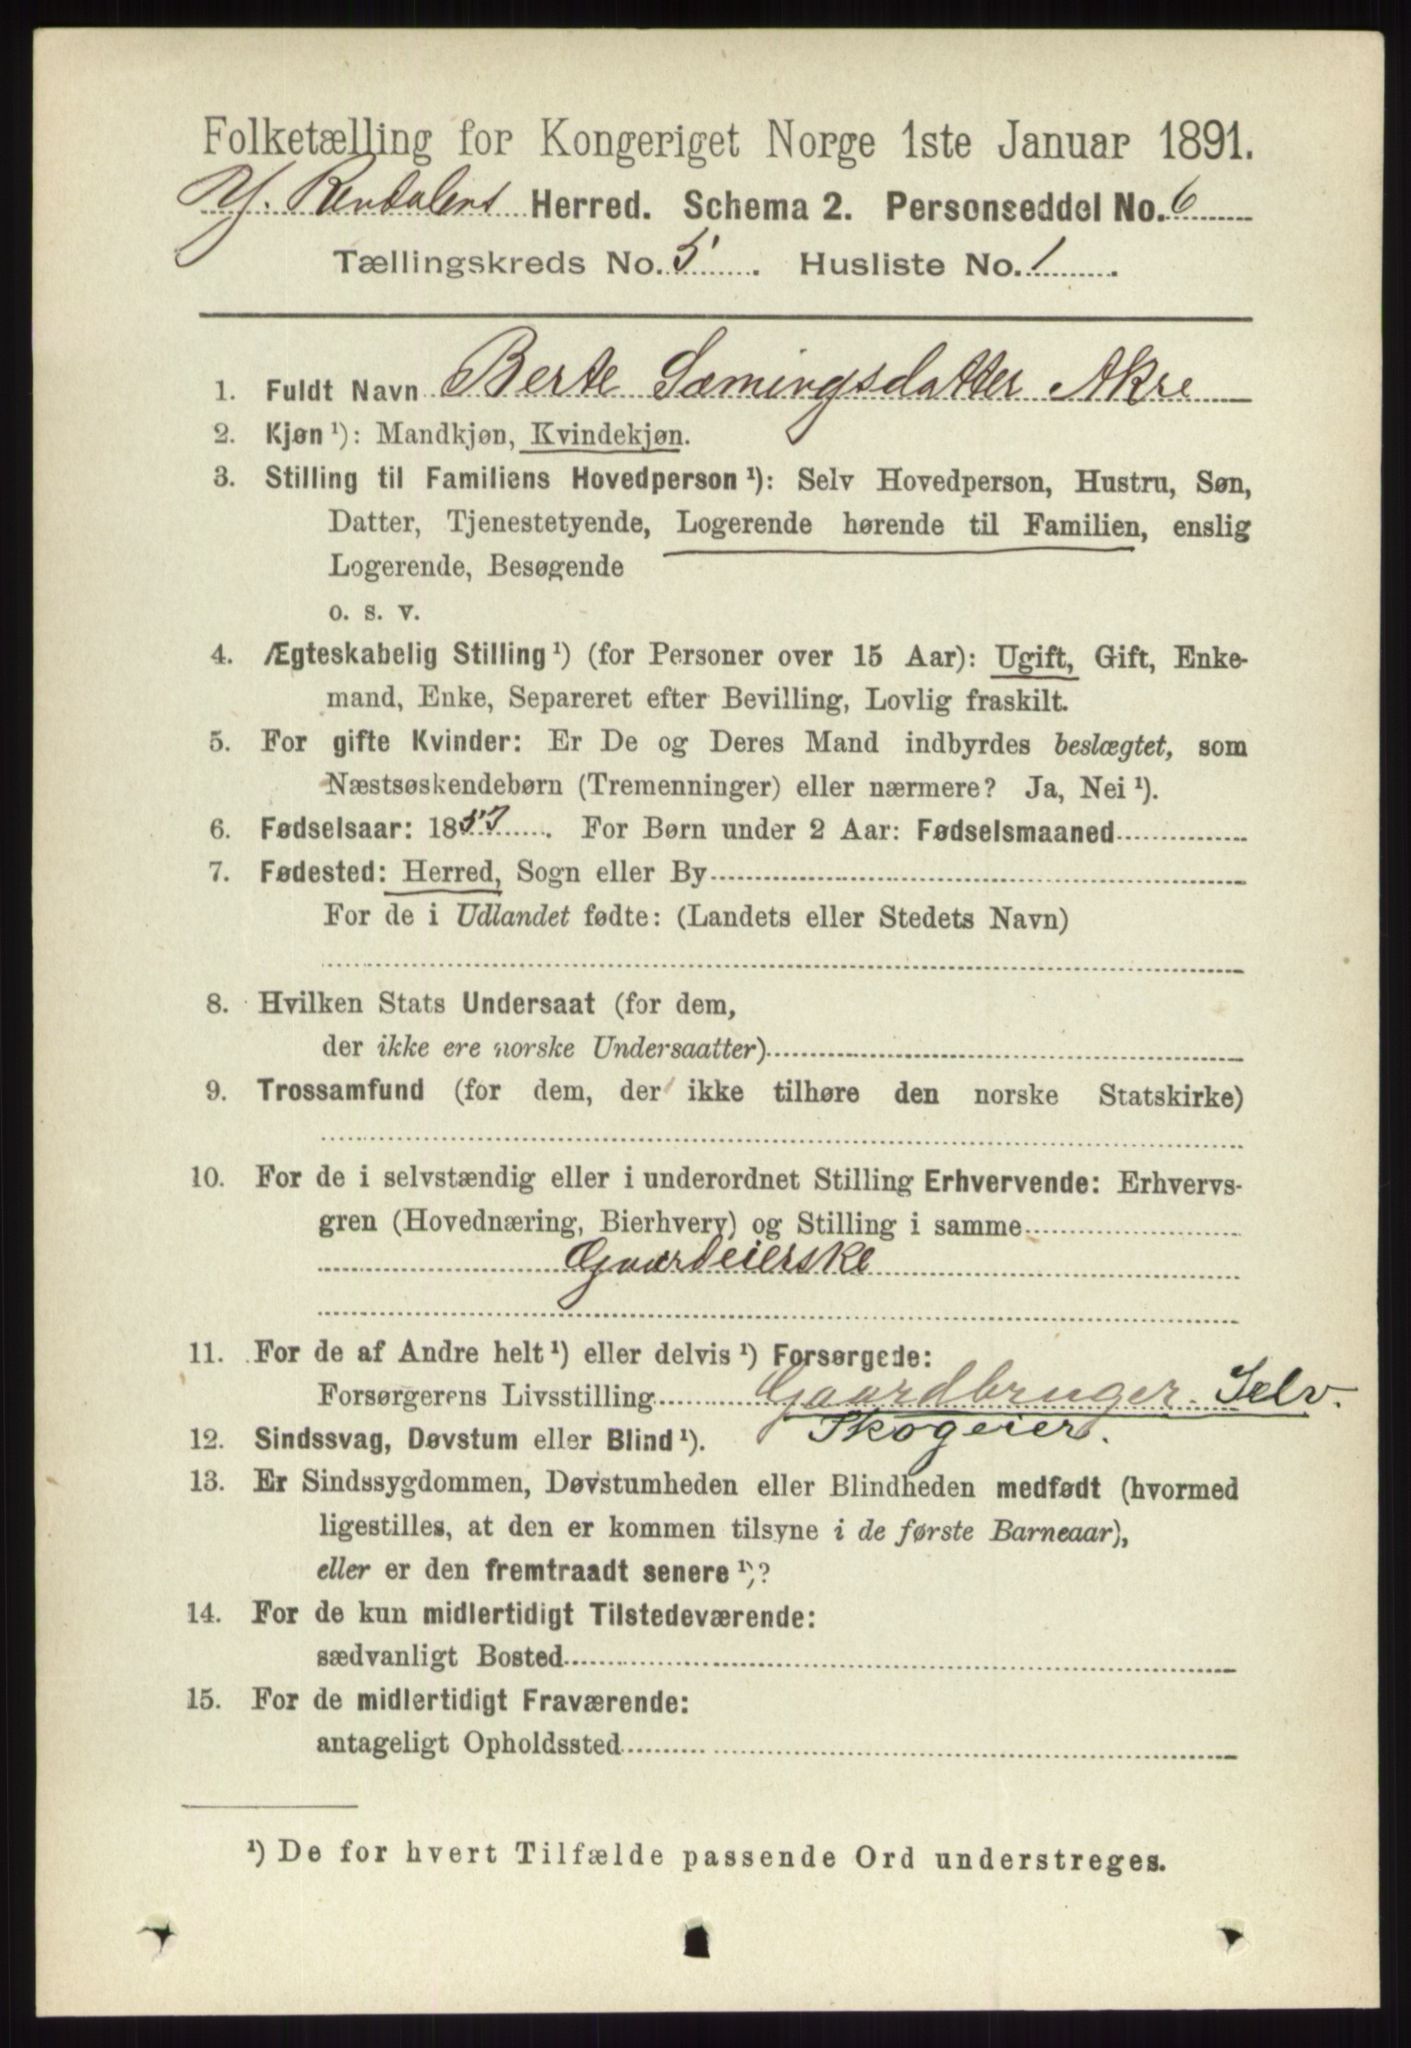 Folketælling for Kongeriget Norge 1ste Januar 1891.
Y. Rendalens Herred. Schema 2. Personseddel No. 6
Tællingskreds No. 5. Husliste No. 1.
1. Fuldt Navn Berte Sæmingsdatter Akre
2. Kjøn ¹): Mandkjøn, Kvindekjøn.
3. Stilling til Familiens Hovedperson ¹): Selv Hovedperson, Hustru, Søn,
Datter, Tjenestetyende, Logerende hørende til Familien, enslig
Logerende, Besøgende
o. s. v.
4. Ægteskabelig Stilling ¹) (for Personer over 15 Aar): Ugift, Gift, Enke-
mand, Enke, Separeret efter Bevilling, Lovlig fraskilt.
5. For gifte Kvinder: Er De og Deres Mand indbyrdes beslægtet, som
Næstsøskendebørn (Tremenninger) eller nærmere? Ja, Nei ¹).
6. Fødselsaar: 1857. For Børn under 2 Aar: Fødselsmaaned
7. Fødested: Herred, Sogn eller By
For de i Udlandet fødte: (Landets eller Stedets Navn)
8. Hvilken Stats Undersaat (for dem,
der ikke ere norske Undersaatter)
9. Trossamfund (for dem, der ikke tilhøre den norske Statskirke)
10. For de i selvstændig eller i underordnet Stilling Erhvervende: Erhvervs-
gren (Hovednæring, Bierhverv) og Stilling i samme
Gaardeierske
11. For de af Andre helt ¹) eller delvis ¹) Forsørgede:
Forsørgerens Livsstilling Gaardbruger. Selv.
Skogeier.
12. Sindssvag, Døvstum eller Blind ¹).
13. Er Sindssygdommen, Døvstumheden eller Blindheden medfødt (hvormed
ligestilles, at den er kommen tilsyne i de første Barneaar),
eller er den fremtraadt senere ¹)?
14. For de kun midlertidigt Tilstedeværende:
sædvanligt Bosted
15. For de midlertidigt Fraværende:
antageligt Opholdssted
¹) De for hvert Tilfælde passende Ord understreges.